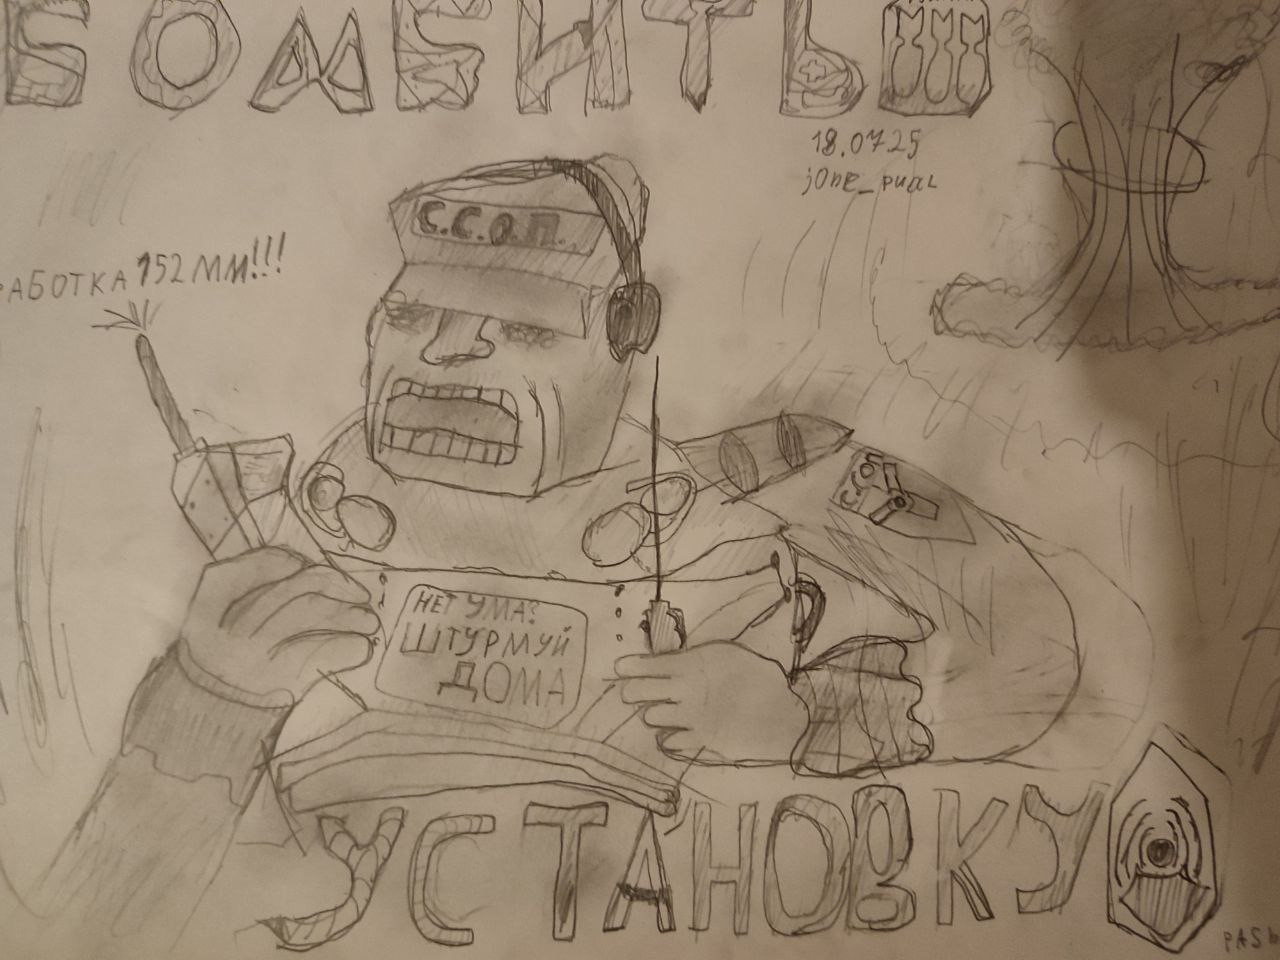 БОМБИТЬ
18.07.25
jone_pual
С.С.О.П.
РАБОТКА 152ММ!!!
НЕТ УМА?
ШТУРМУЙ
ДОМА
УСТАНОВКУ